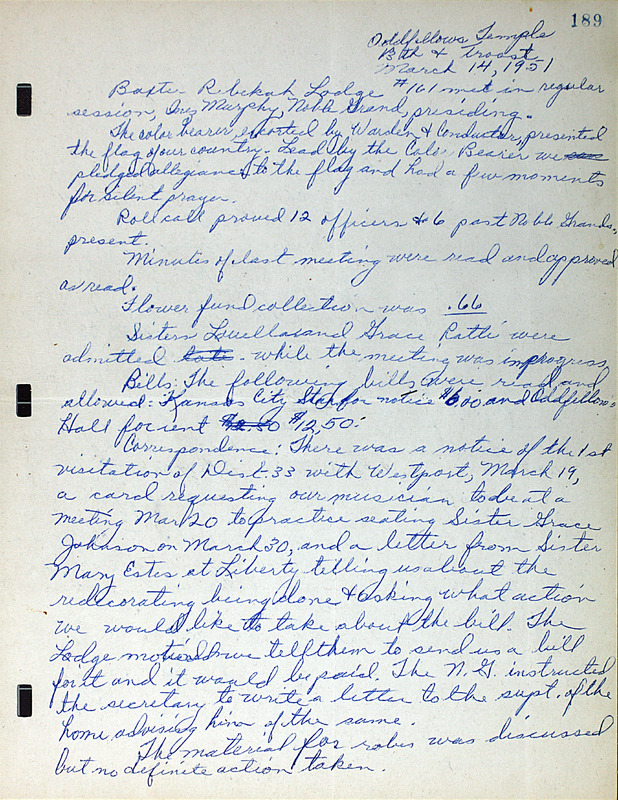 189
Oddfellows Temple
& Troost
March 14, 1951
Baxter Rebekah Lodge #161 met in regular
session, Inez Murphy, Noble Grand, presiding.
The color bearer, escorted by Warden & Conductor, presented
the flag of our country. Lead by the Color Bearer we
pledged allegiance to the flag and had a few moments
for silent prayer.
Roll call proved 12 officers & 6 past Noble Grands
present.
Minutes of last meeting were read and approved
as read.
Flower fund collection was .66
Sisters Luella and Grace were
admitted late - while the meeting was in progress
Bills: The following bills were read and
allowed: Kansas City Star for notice $6.00 and Oddfellows
Hall for rent $12.50.
Correspondence: There was a notice of the 1st
visitation of Dist. 33 with Westport, March 19,
a card requesting our musician to be at a
meeting Mar 20 to practice seating Sister Grace
Johnson on March 30, and a letter from Sister
Mary Estes at Liberty telling us about the
redecorating being done & asking what action
we would like to take about the bill. The
Lodge motioned we tell them to send us a bill
for it and it would be paid. The N. G. instructed
the secretary to write a letter to the supt. of the
home advising him of the same.
The material for robes was discussed
but no definite action taken.